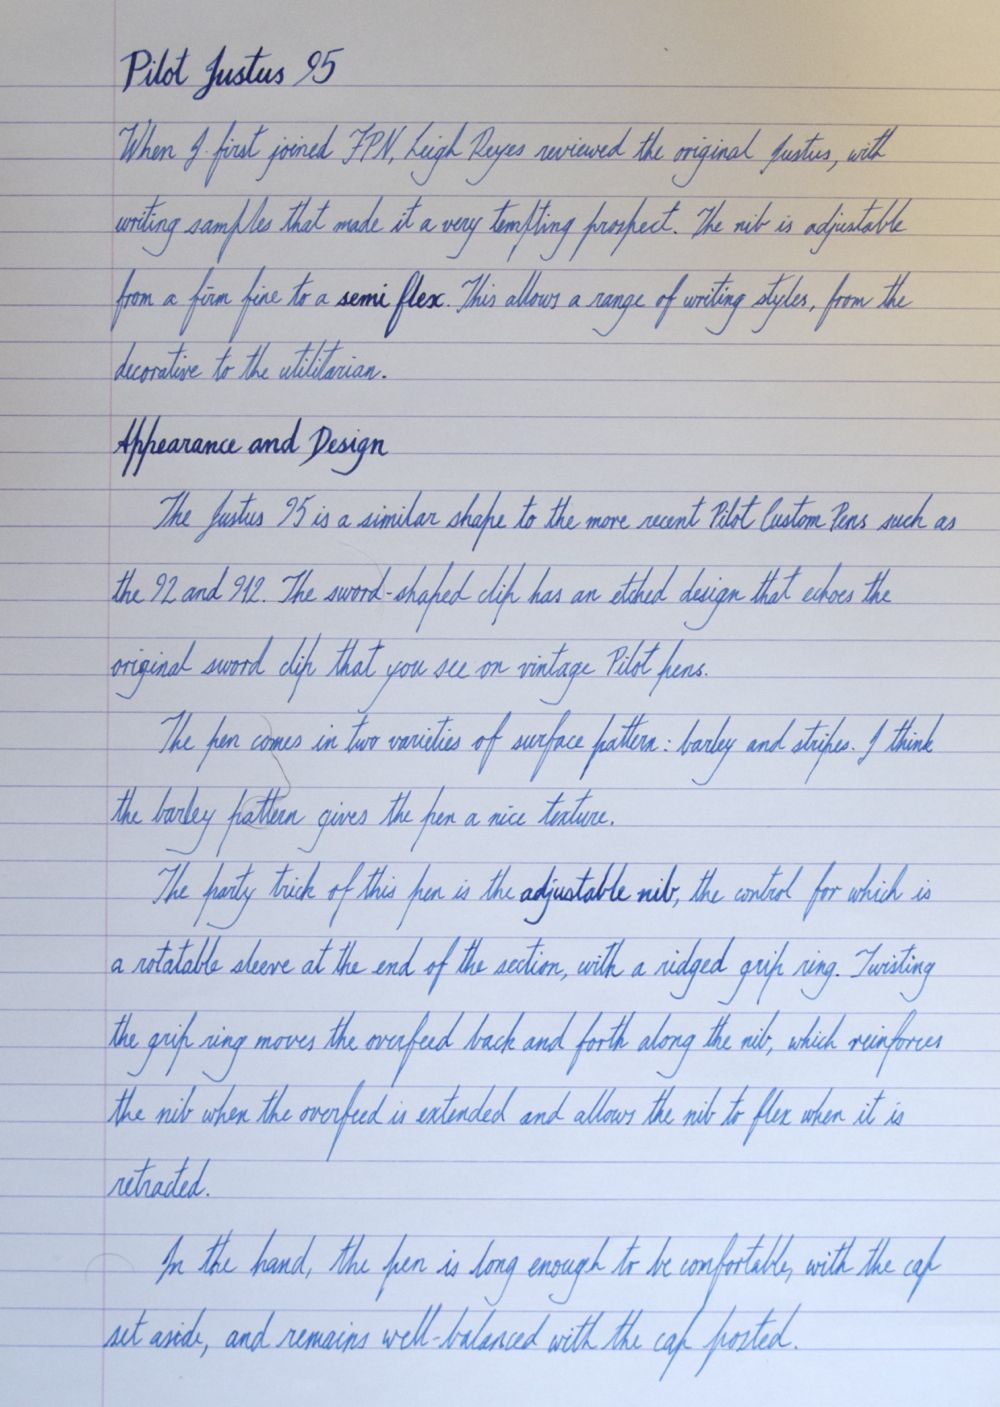 Pilot Justus 95
When I first joined FPN, Leigh Reyes reviewed the original Justus, with
writing samples that made it a very tempting prospect. The nib is adjustable
from a firm fine to a semi flex. This allows a range of writing styles, from the
decorative to the utilitarian.
Appearance and Design
The Justus 95 is a similar shape to the more recent Pilot Custom Pens such as
the 92 and 912. The sword-shaped clip has an etched design that echoes the
original sword clip that you see on vintage Pilot pens.
The pen comes in two varieties of surface pattern: barley and stripes. I think
the barley pattern gives the pen a nice texture.
The party trick of this pen is the adjustable nib, the control for which is
a rotatable sleeve at the end of the section, with a ridged grip ring. Twisting
the grip ring moves the overfeed back and forth along the nib, which reinforces
the nib when the overfeed is extended and allows the nib to flex when it is
retracted.
In the hand, the pen is long enough to be comfortable, with the cap
set aside, and remains well-balanced with the cap posted.